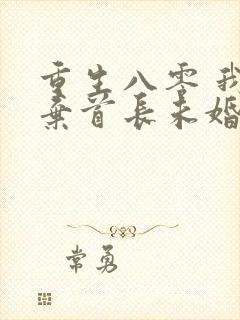 重生八零 我
弃首长未婚
常勇